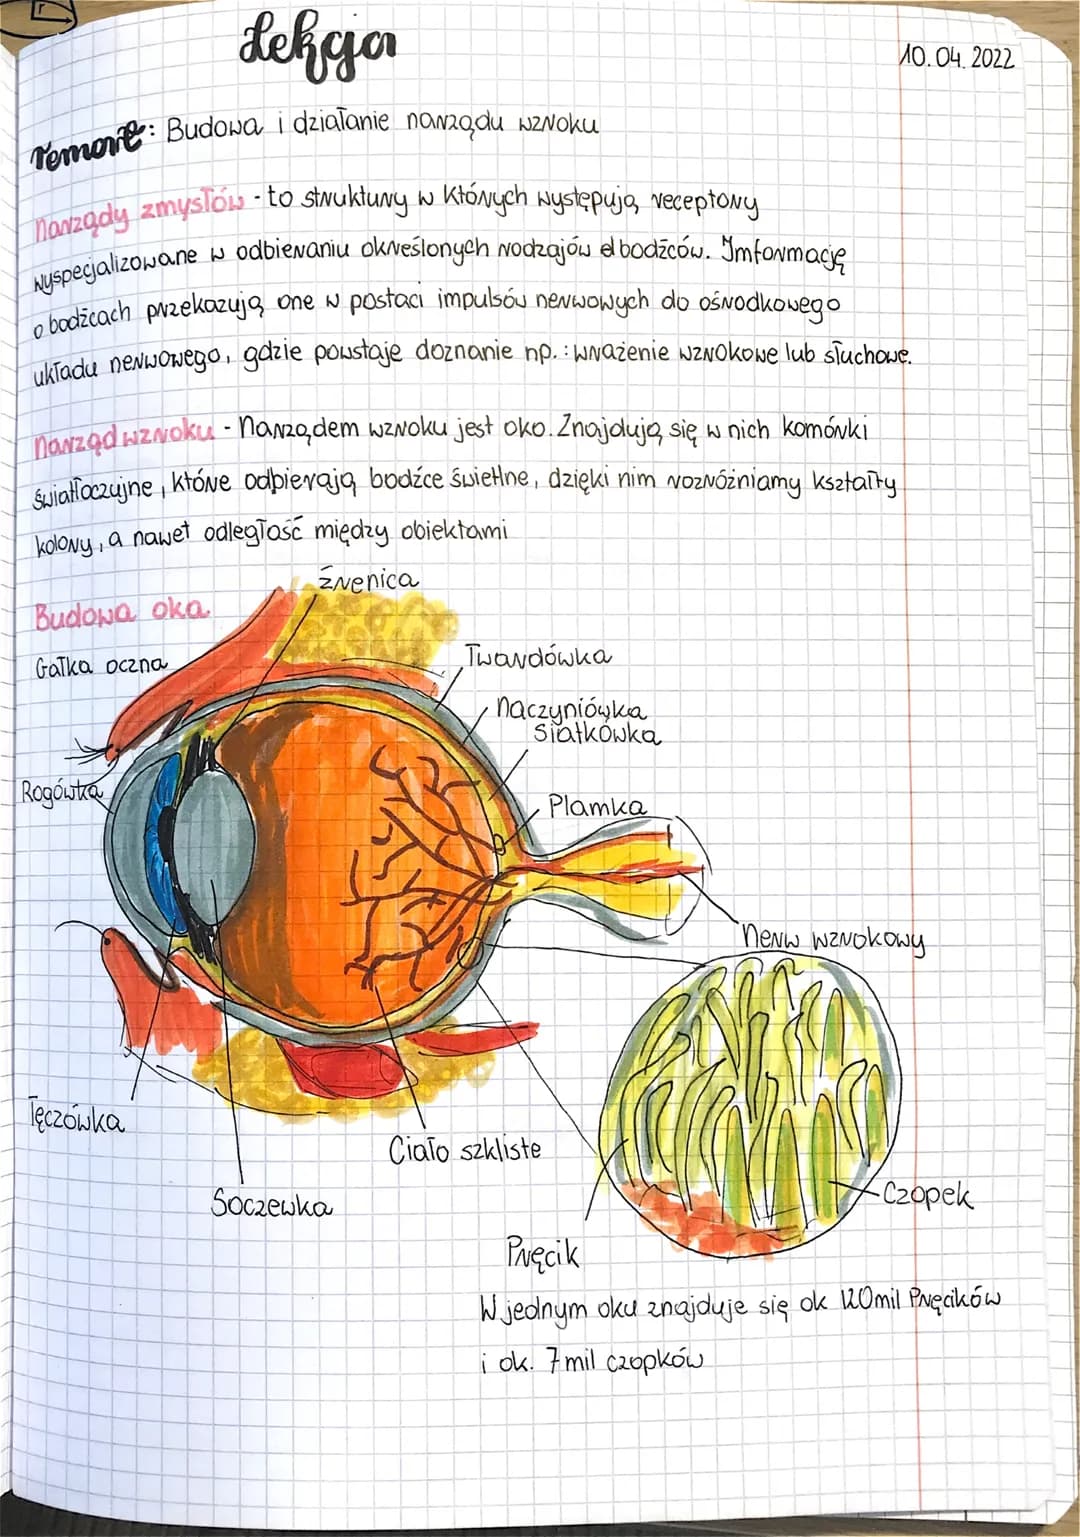 Lekcja
10.04.2022
Temat: Budowa i działanie narządu wzroku
Narządy zmysłów - to struktury w których występują receptory
wyspecjalizowane w odbieraniu określonych rodzajów bodźców. Imformację
o bodźcach przekazują one w postaci impulsów nerwowych do ośrodkowego
układu nerwowego, gdzie powstaje doznanie np.: wrażenie wzrokowe lub słuchowe.
Narząd wzroku - Narządem wzroku jest oko. Znajdują się w nich komórki
światłoczujne, które odbierają bodźce świetlne, dzięki nim rozróżniamy kształty
kolory, a nawet odległość między obiektami
Źrenica
Budowa oka
Gałka oczna
Twardówka
Naczyniówka
Siatkówka
Rogówka
Plamka
Nerw wzrokowy
Tęczówka
Ciało szkliste
Soczewka
Czopek
Pręcik
W jednym oku znajduje się ok 120mil Pręcików
i ok. 7mil czopków